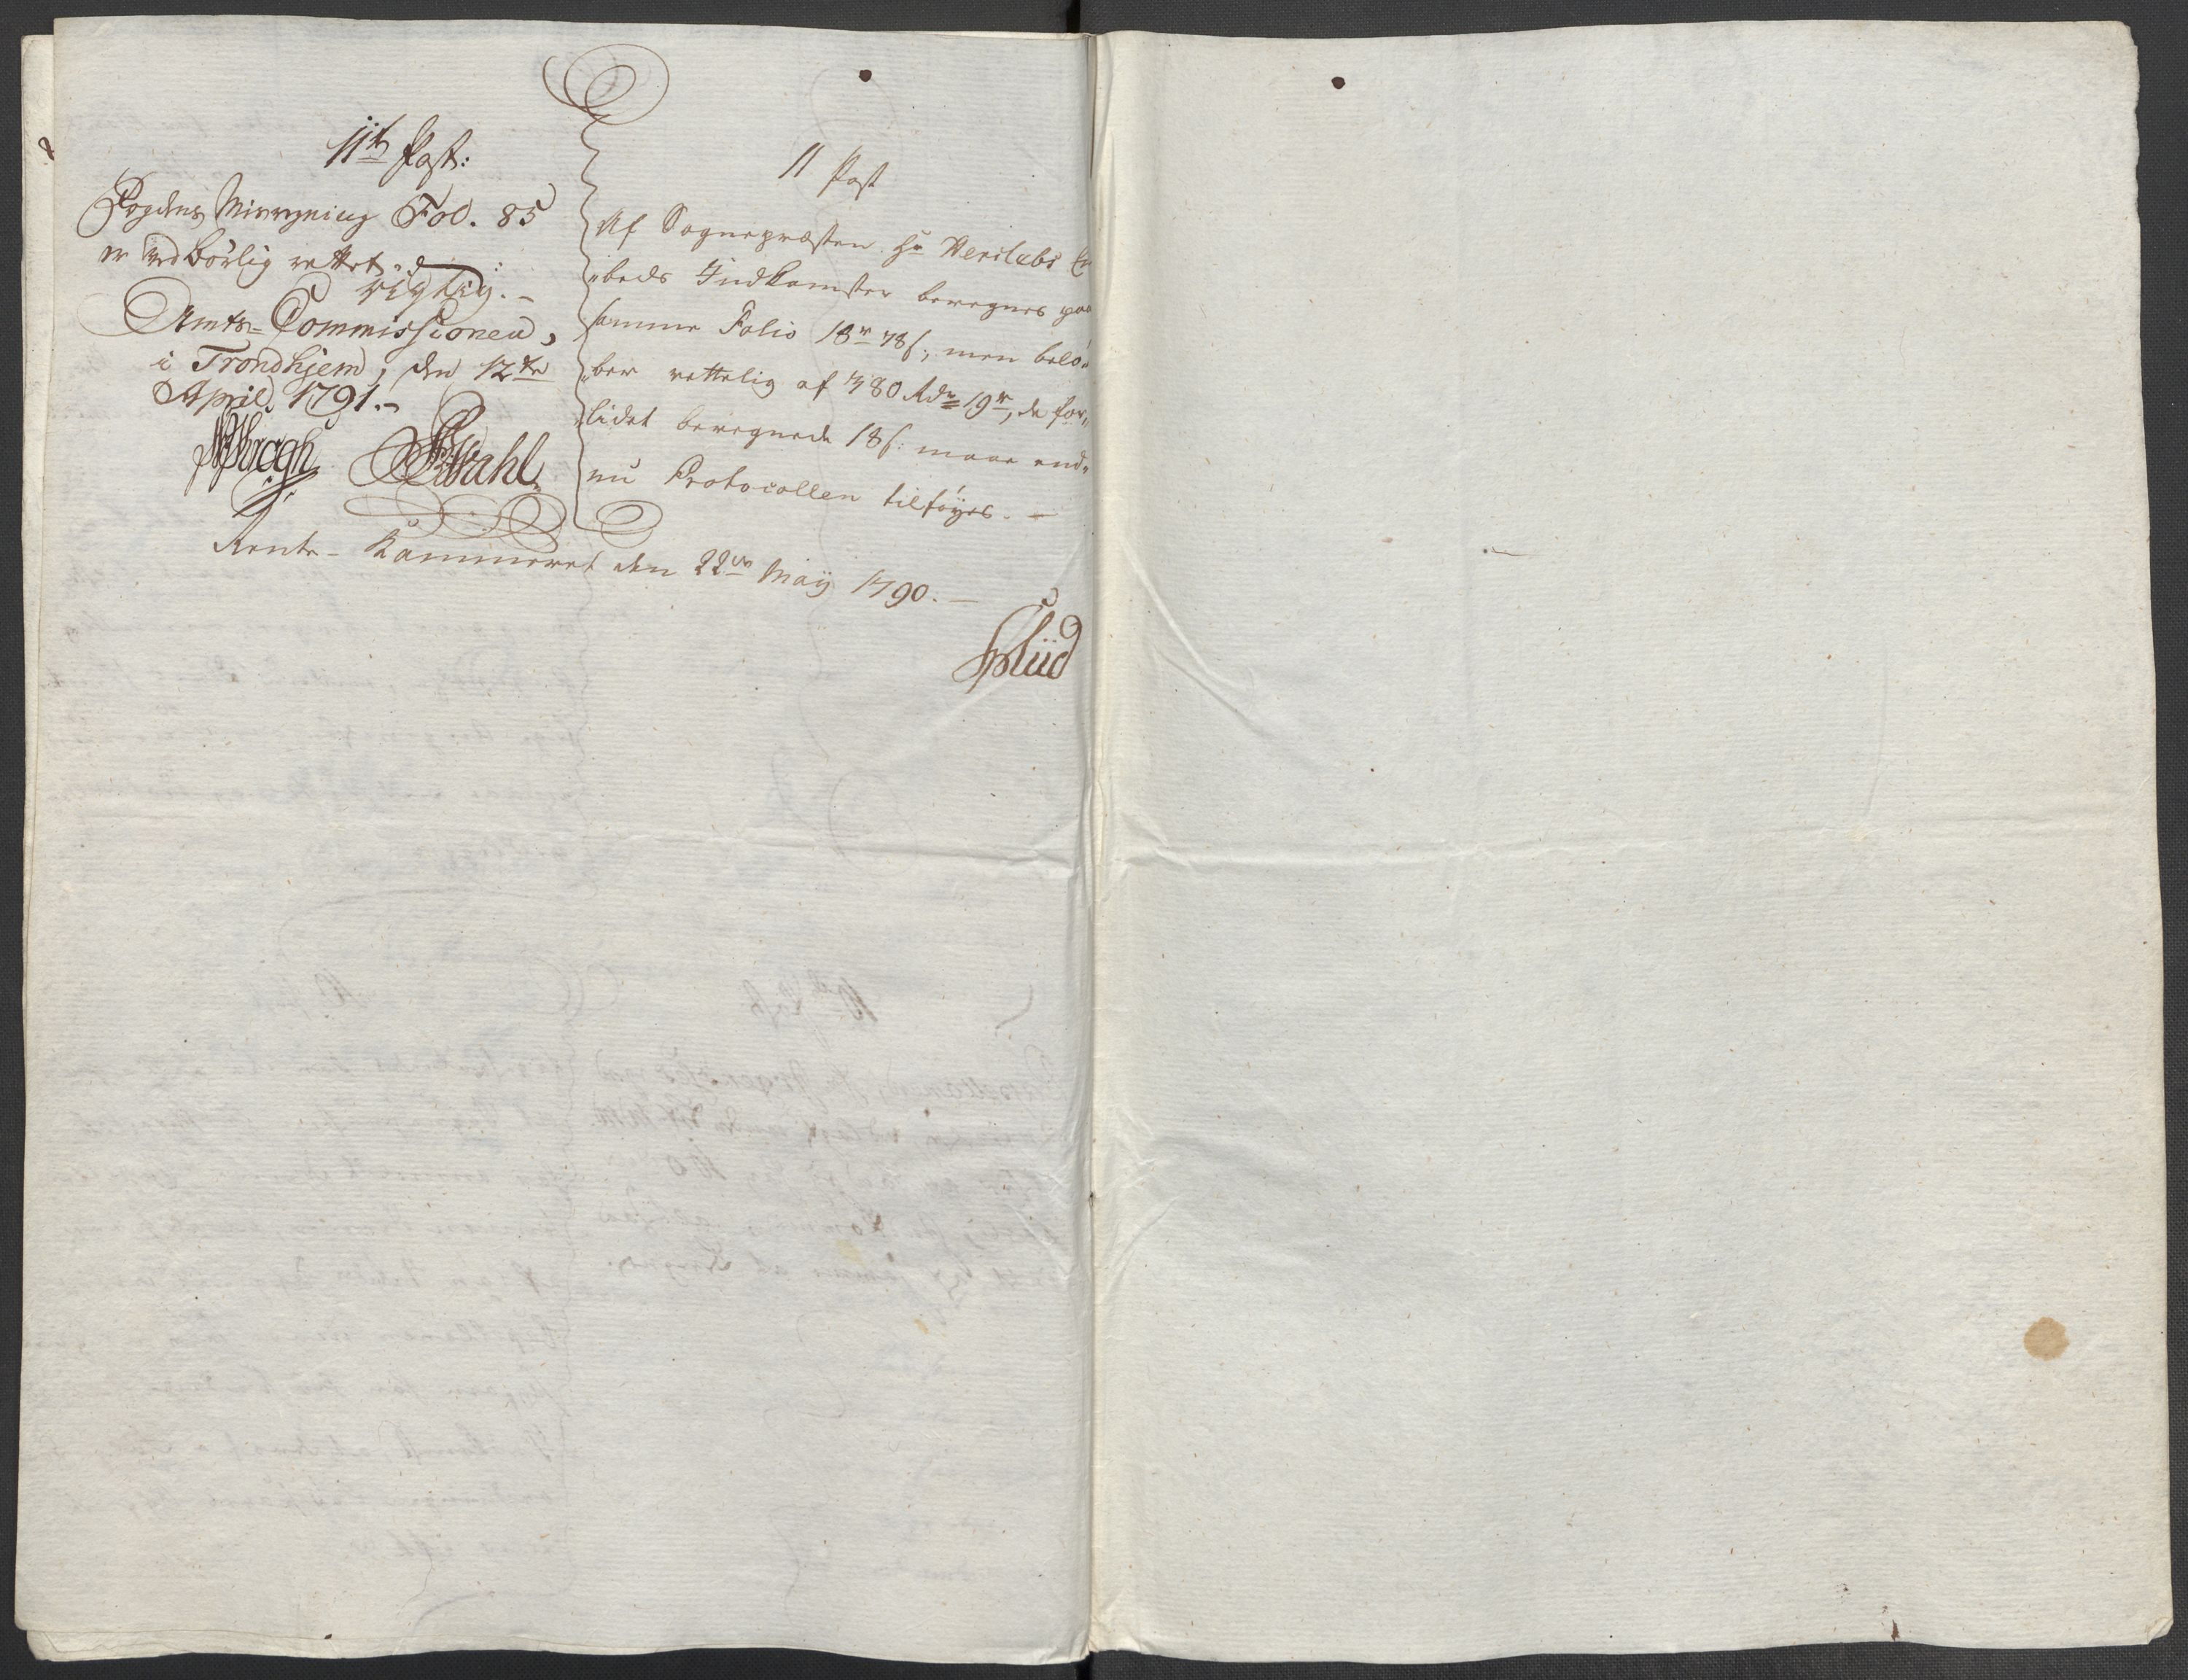 11te Post:
Fogdens Misregning Fol. 85
er ved børlig rettet.
rigtig.
Amts-Commissionen,
i Trondhjem, den 12te
April 1791.
Wahl
11 Post
Af Sognepræsten Hr
beds Indkomster beregnes paa
samme Folio 18 rd 78 s, men belö„
„ber rettelig af 780 Rdr 19 rd, de for„
„lidet beregnede 18 s: maae end„
nu Protocollen tilføyes. –
Rente-Kammeret den 22de Maij 1790. –